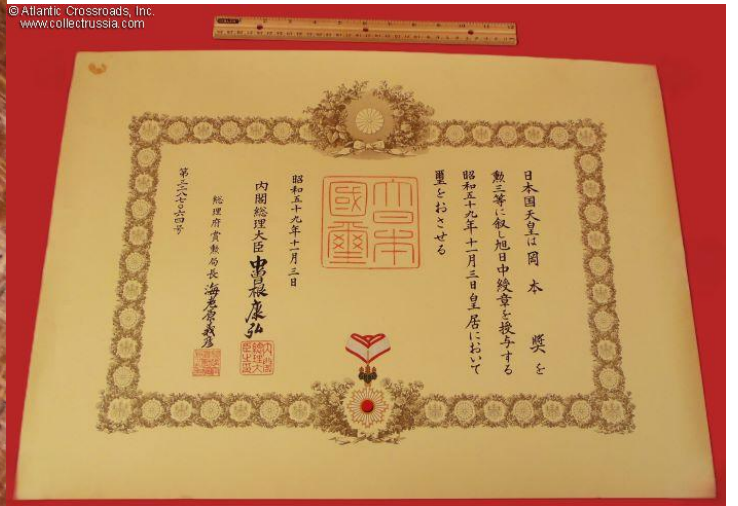 © Atlantic Crossroads, Inc.
www.collectrussia.com
日本国天皇は岡本 奨を
勲三等に叙し旭日中綬章を授与する
昭和五十九年十一月三日皇居において
璽をおさせる
大日本
國璽
昭和五十九年十一月三日
内閣総理大臣 中曽根康弘
総理府賞勲局長 海老原義彦